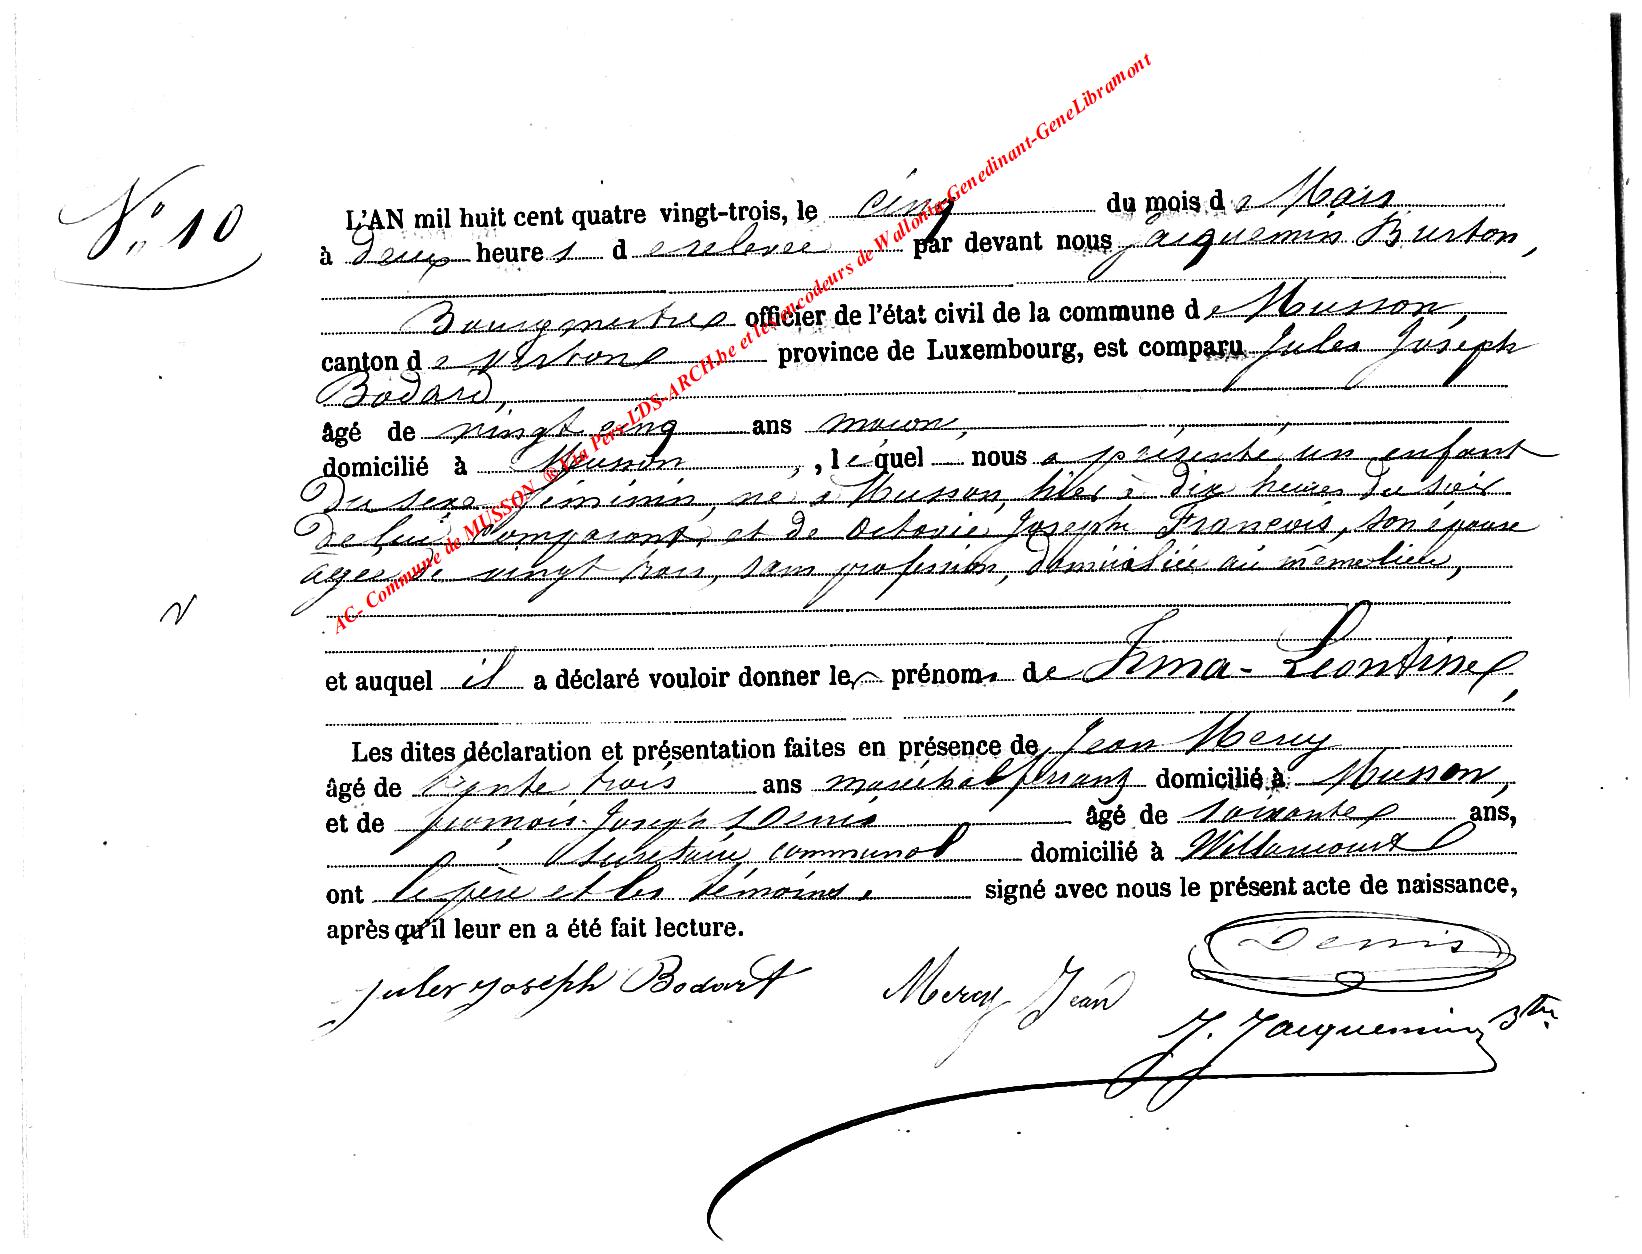 N° 10
L'AN mil huit cent quatre vingt-trois, le cinq du mois de Mars
à deux heures de relevée par devant nous Jacquemin Burton,
Bourgmestre officier de l'état civil de la commune de Musson,
canton de Virton province de Luxembourg, est comparu Jules Joseph
Bodard,
âgé de vingt cinq ans maçon,
domicilié à Musson, , lequel nous a présenté un enfant
du sexe féminin, né à Musson, hier à dix heures du soir
de lui comparant, et de Octavie Joseph François, son épouse
âgée de vingt trois, sans profession, domiciliée au même lieu,
et auquel il a déclaré vouloir donner les prénoms de Irma-Léontine,
Les dites déclaration et présentation faites en présence de Jean Mercy
âgé de trente trois ans maréchal ferrant domicilié à Musson,
et de François-Joseph Denis âgé de soixante ans,
secrétaire communal domicilié à Willancourt
ont le père et les témoins, signé avec nous le présent acte de naissance,
après qu'il leur en a été fait lecture.
Denis
Jules Joseph Bodart Mercy Jean
J. Jacquemin Btn
AC- Commune de MUSSON ® Via Pers-LDS-ARCH.be et les encodeurs de Wallonia-Genedinant-GeneLibramont